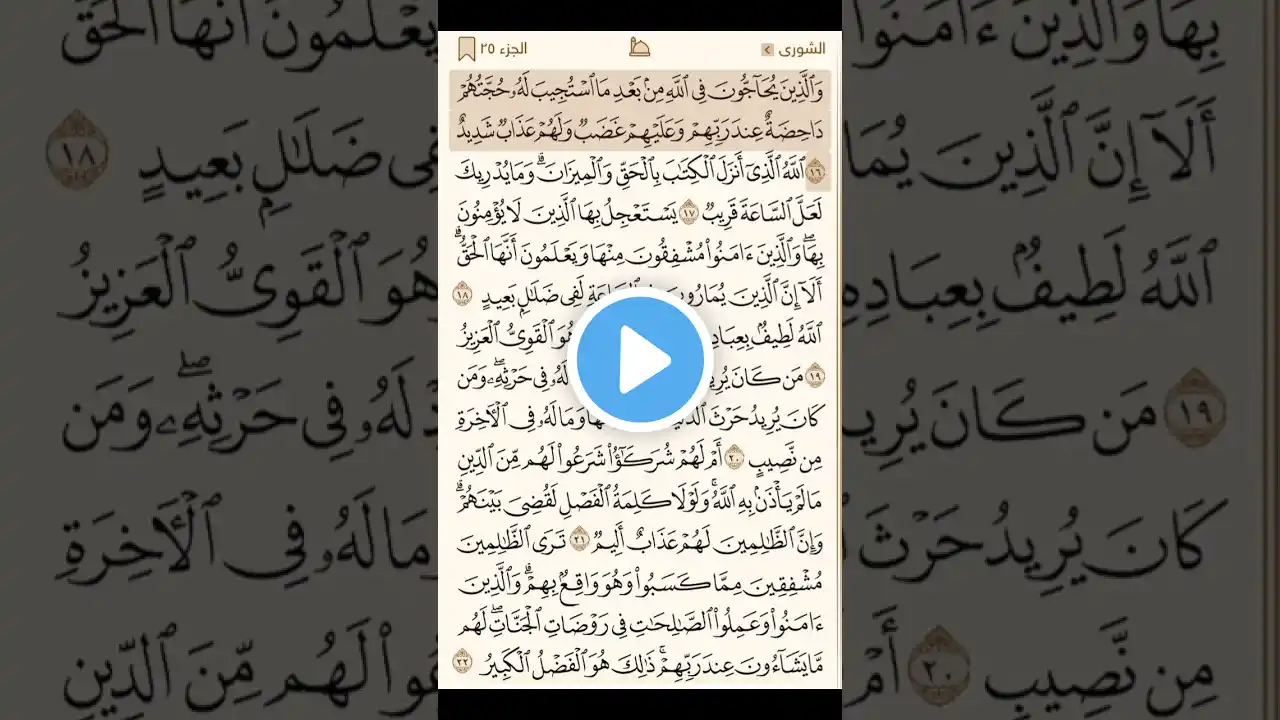 الشورى
الجزء ٢٥
وَٱلَّذِينَ يُحَآجُّونَ فِى ٱللَّهِ مِنۢ بَعْدِ مَا ٱسْتُجِيبَ لَهُۥ حُجَّتُهُمْ
دَاحِضَةٌ عِندَ رَبِّهِمْ وَعَلَيْهِمْ غَضَبٌ وَلَهُمْ عَذَابٌ شَدِيدٌ
١٦ ٱللَّهُ ٱلَّذِىٓ أَنزَلَ ٱلْكِتَٰبَ بِٱلْحَقِّ وَٱلْمِيزَانَ ۗ وَمَا يُدْرِيكَ
لَعَلَّ ٱلسَّاعَةَ قَرِيبٌ ١٧ يَسْتَعْجِلُ بِهَا ٱلَّذِينَ لَا يُؤْمِنُونَ
بِهَا ۖ وَٱلَّذِينَ ءَامَنُوا۟ مُشْفِقُونَ مِنْهَا وَيَعْلَمُونَ أَنَّهَا ٱلْحَقُّ ۗ
أَلَآ إِنَّ ٱلَّذِينَ لَفِى ضَلَٰلٍۭ بَعِيدٍ ١٨
ٱللَّهُ لَطِيفٌۢ ٱلْقَوِىُّ ٱلْعَزِيزُ
١٩ مَن كَانَ فِى حَرْثِهِۦ ۖ وَمَن
كَانَ يُرِيدُ حَرْثَ وَمَا لَهُۥ فِى ٱلْءَاخِرَةِ
مِن نَّصِيبٍ ٢٠ أَمْ لَهُمْ شُرَكَٰٓؤُا۟ شَرَعُوا۟ لَهُم مِّنَ ٱلدِّينِ
مَا لَمْ يَأْذَنۢ بِهِ ٱللَّهُ ۚ وَلَوْلَا كَلِمَةُ ٱلْفَصْلِ لَقُضِىَ بَيْنَهُمْ ۗ
وَإِنَّ ٱلظَّٰلِمِينَ لَهُمْ عَذَابٌ أَلِيمٌ ٢١ تَرَى ٱلظَّٰلِمِينَ
مُشْفِقِينَ مِمَّا كَسَبُوا۟ وَهُوَ وَاقِعٌۢ بِهِمْ ۗ وَٱلَّذِينَ
ءَامَنُوا۟ وَعَمِلُوا۟ ٱلصَّٰلِحَٰتِ فِى رَوْضَاتِ ٱلْجَنَّاتِ ۖ لَهُم
مَّا يَشَآءُونَ عِندَ رَبِّهِمْ ۚ ذَٰلِكَ هُوَ ٱلْفَضْلُ ٱلْكَبِيرُ ٢٢